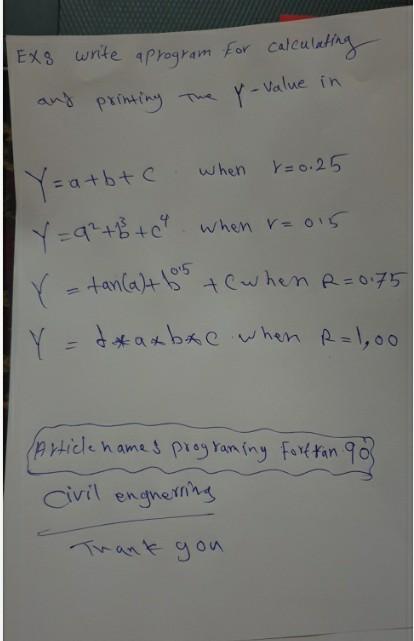 EX8 write aprogram For calculating
and printing The Y-Value in
Y=a+b+c when r=0.25
Y=a²+b³+c⁴ when r= 0.5
Y = tan(a)+b^0.5 +C when R=0.75
Y = *a*b*c when R=1,00
Article names programing Fortran 90
Civil engnerring
Thank you